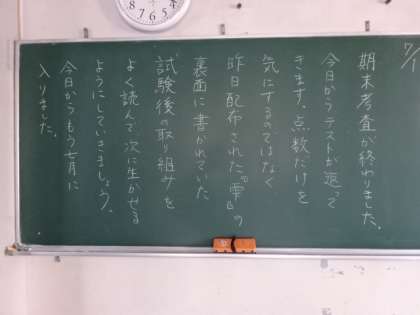 7/1
期末考査が終わりました。
今日からテストが返って
きます。点数だけを
気にするのではなく
昨日配布された『雫』の
裏面に書かれていた
"試験後の取り組み"を
よく読んで次に生かせる
ようにしていきましょう。
今日からもう七月に
入りました。